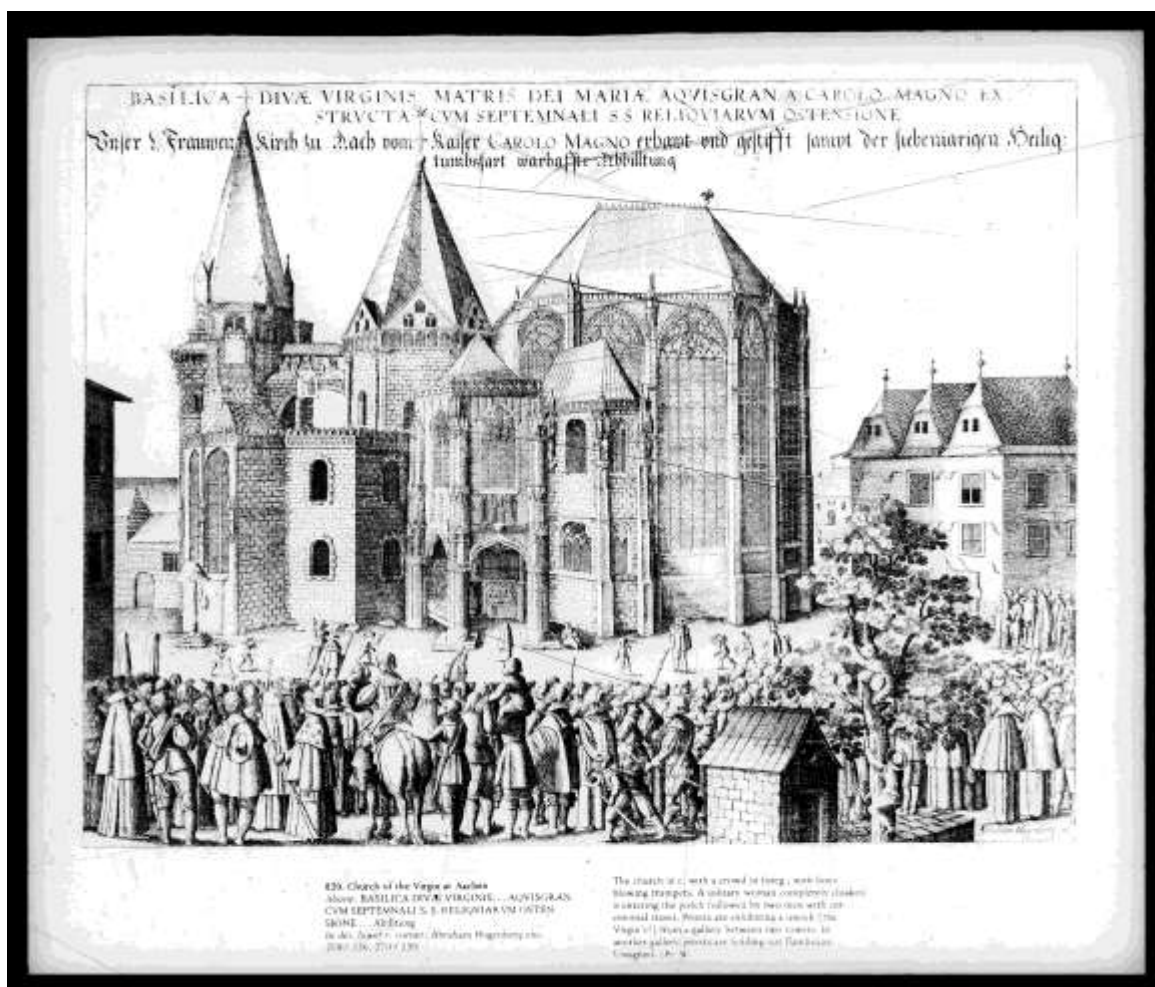 BASILICA DIVÆ VIRGINIS MATRIS DEI MARIÆ AQVISGRAN A CAROLO MAGNO EX
STRVCTA CVM SEPTEMNALI S S RELIQVIARVM OSTENSIONE
Vnser L Frawen Kirch zu Aach vom Kaiser CAROLO MAGNO erbawt vnd gestifft sampt der siebeniarigen Heilig:
tumbsfart warhaffte Abbilltung
839. Church of the Virgin at Aachen
Above: BASILICA DIVÆ VIRGINIS.... AQVISGRAN
CVM SEPTEMNALI S. S. RELIQVIARVM OSTEN
SIONE.... Abilltung
In des. lower r. corner: Abraham Hogenberg
The church in c. with a crowd in foreg., some
blowing trumpets. A solitary woman completely cloaked
is entering the porch followed by two men with
Priests are exhibiting a smock (the
Virgin's?) from a gallery between two towers. In
another gallery priests are holding out